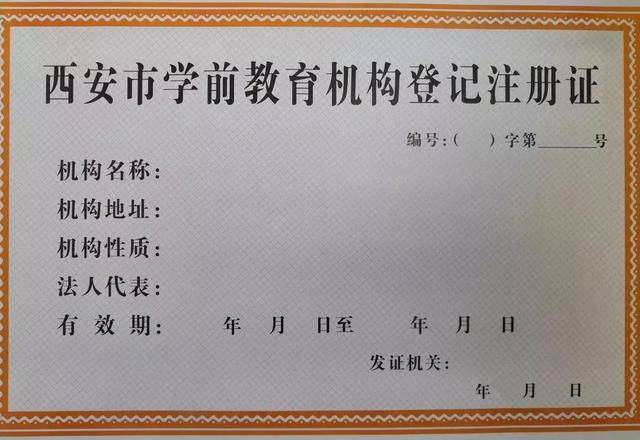 西安市学前教育机构登记注册证
编号:( )字第______号
机构名称:
机构地址:
机构性质:
法人代表:
有效期: 年 月 日至 年 月 日
发证机关:
年 月 日